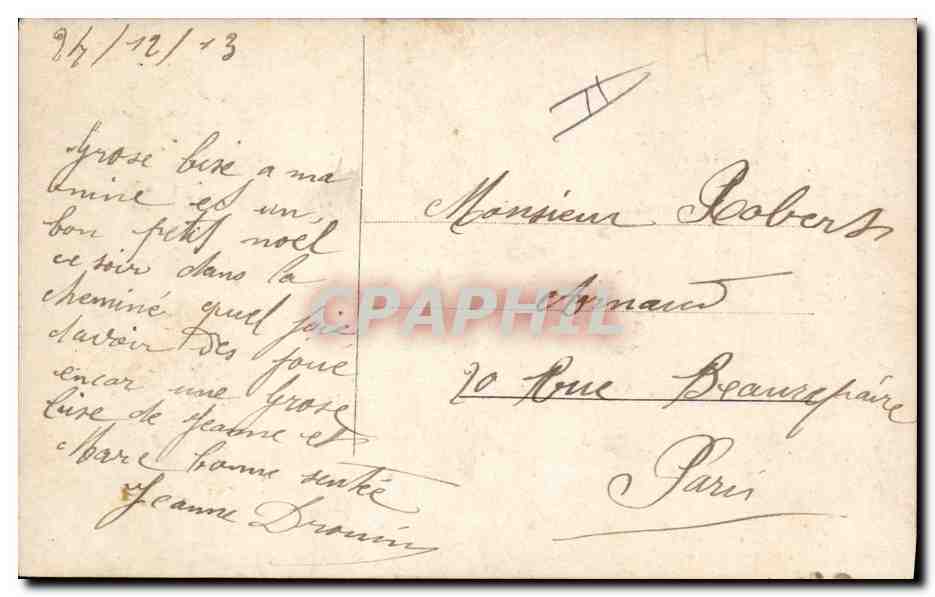 24/12/13
Grose bise a ma
mine et un
bon petit noël
ce soir dans la
cheminé quel joie
davoir des joué
encor une Grose
bise de Jeanne et
Marc bonne sentée
Jeanne Drouin
Monsieur Robert
Arnaud
20 Rue Beaurepaire
Paris
CPAPHIL